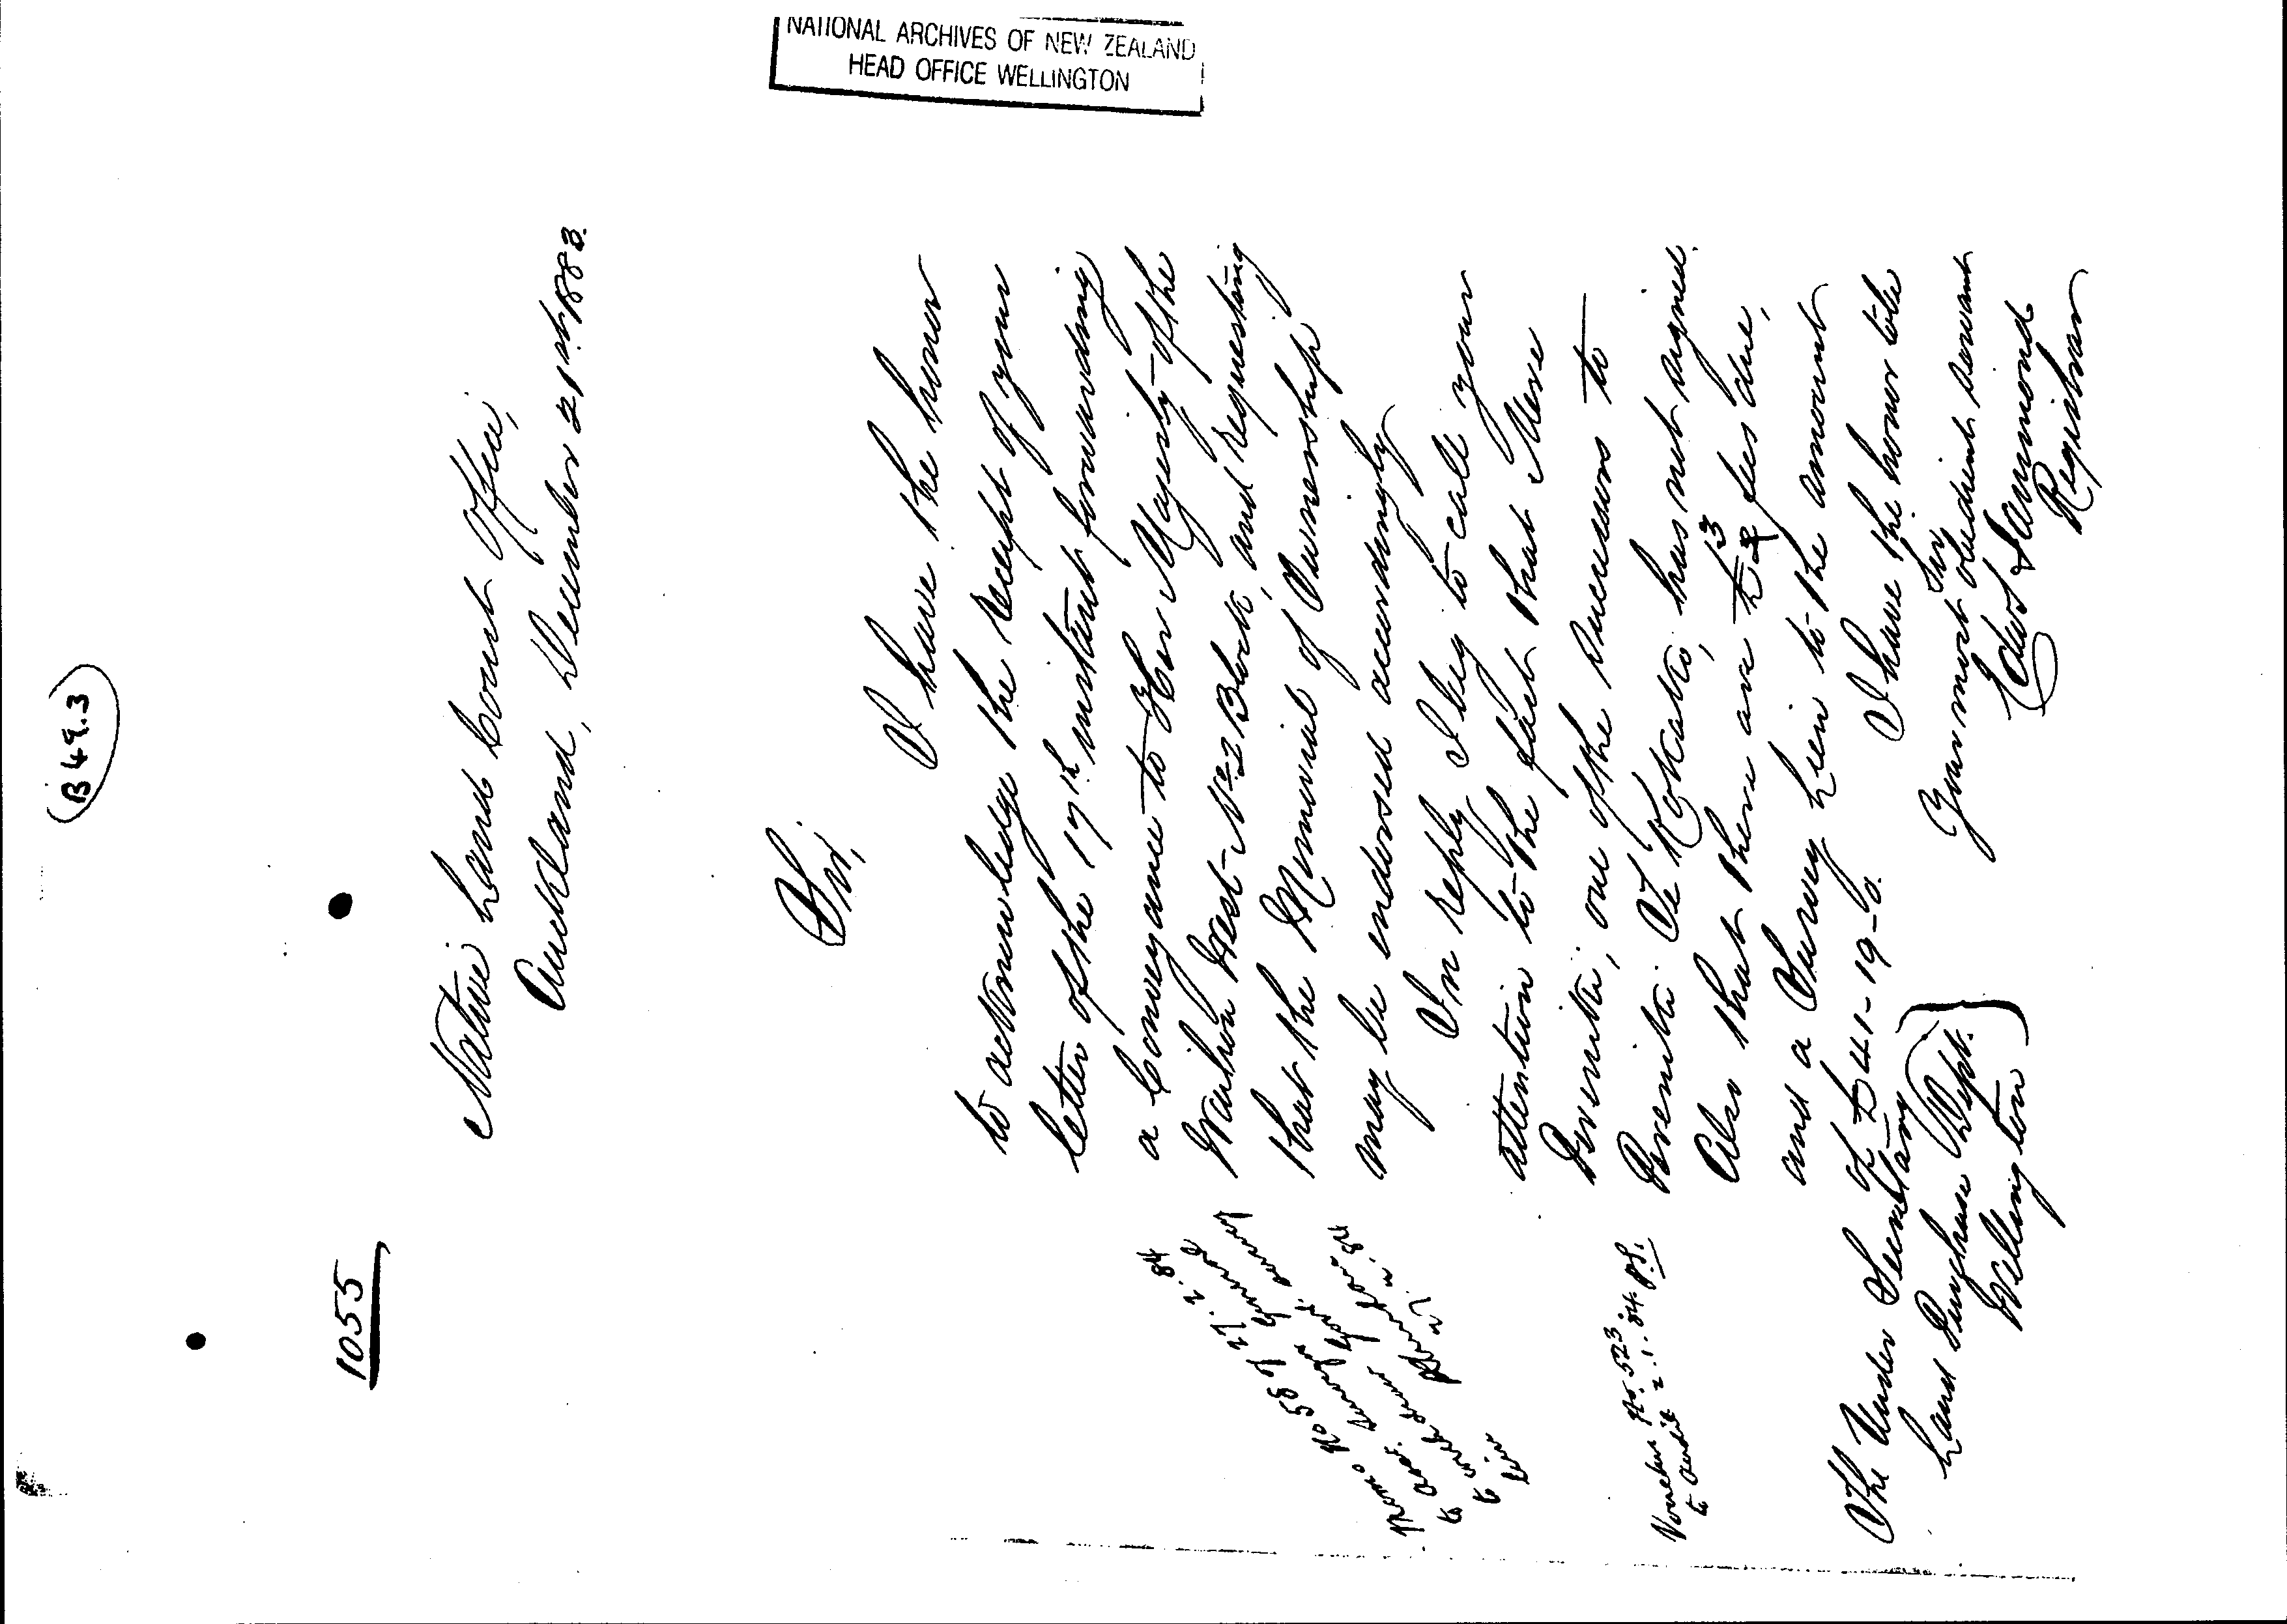 NATIONAL ARCHIVES OF NEW ZEALAND
HEAD OFFICE WELLINGTON
B 49.3
1055
Native Land Court Office,
Auckland, December 21st 1883.
Sir,
I have the honor
to acknowledge the receipt of your
letter of the 17th instant forwarding
a Conveyance to Her Majesty of the
Waihou West No 2 Block, and requesting
that the Memorial of Ownership
may be endorsed accordingly
In reply I beg to call your
attention to the fact that Mere
one of the successors to
Te has not signed.
Also that there are £3 fees due,
and a Survey Lien to the amount
of £41-19-6.
I have the honor to be
Sir
Your most obedient servant
Edw Hammond
Registrar
The Under Secretary
Land Purchase Dept.
Wellington
No 587 27.2.84
to
lien
Voucher No 523
to Audit 2.1.84